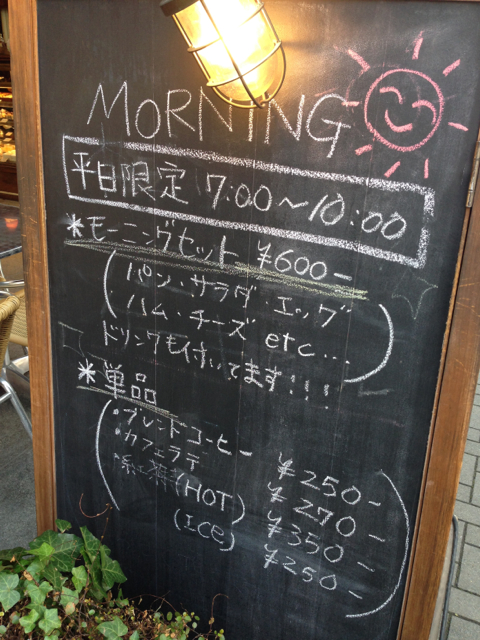 MORNING
平日限定 7:00～10:00
*モーニングセット ¥600-
(パン・サラダ・エッグ
ハム・チーズ etc...
ドリンクも付いてます!!!)
*単品
(・ブレンドコーヒー ¥250-
・カフェラテ ¥270-
・紅茶(HOT) ¥350-
(ICE) ¥250-)